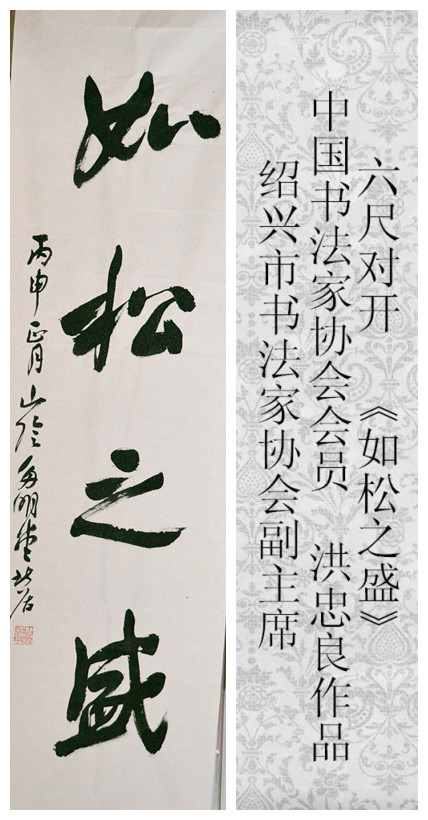 六尺对开 《如松之盛》
中国书法家协会会员 洪忠良作品
绍兴市书法家协会副主席
如松之盛
丙申正月山阴